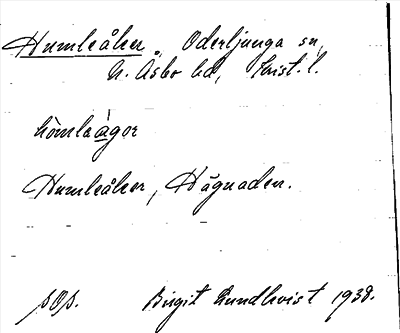 Humleåker, Oderljunga sn,
N. Åsbo hd, Krist. l.
hömlaågor
Humleåker, Hägnaden.
sOp. Birgit Lundkvist 1938.